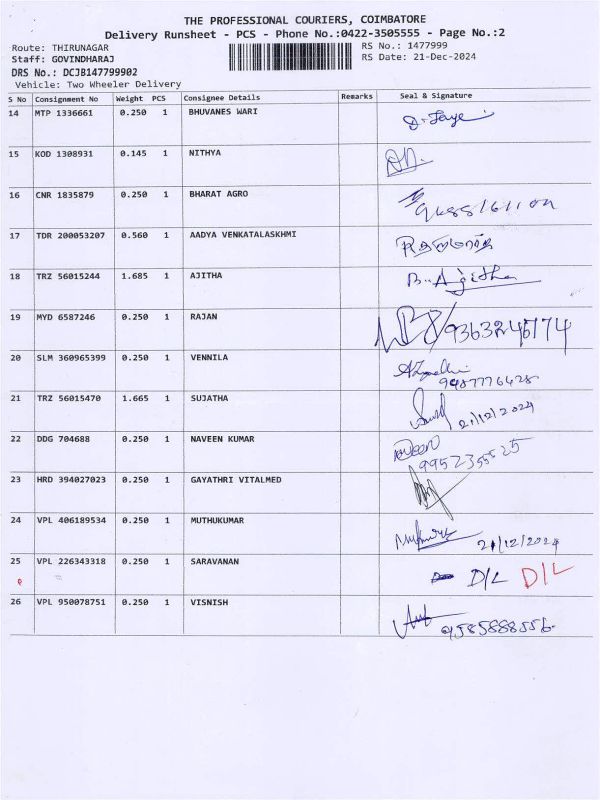 THE PROFESSIONAL COURIERS, COIMBATORE
Delivery Runsheet - PCS - Phone No.:0422-3505555 - Page No.:2
Route: THIRUNAGAR RS No.: 1477999
Staff: GOVINDHARAJ RS Date: 21-Dec-2024
DRS No.: DCJB147799902
Vehicle: Two Wheeler Delivery
S No Consignment No Weight PCS Consignee Details Remarks Seal & Signature
14 MTP 1336661 0.250 1 BHUVANES WARI
15 KOD 1308931 0.145 1 NITHYA
16 CNR 1835879 0.250 1 BHARAT AGRO
17 TDR 200053207 0.560 1 AADYA VENKATALASKHMI
18 TRZ 56015244 1.685 1 AJITHA B. Ajitha
19 MYD 6587246 0.250 1 RAJAN
20 SLM 360965399 0.250 1 VENNILA
9487776428
21 TRZ 56015470 1.665 1 SUJATHA
21/12/2024
22 DDG 704688 0.250 1 NAVEEN KUMAR
23 HRD 394027023 0.250 1 GAYATHRI VITALMED
24 VPL 406189534 0.250 1 MUTHUKUMAR
21/12/2024
25 VPL 226343318 0.250 1 SARAVANAN D/L D/L
26 VPL 950078751 0.250 1 VISNISH
9585888556